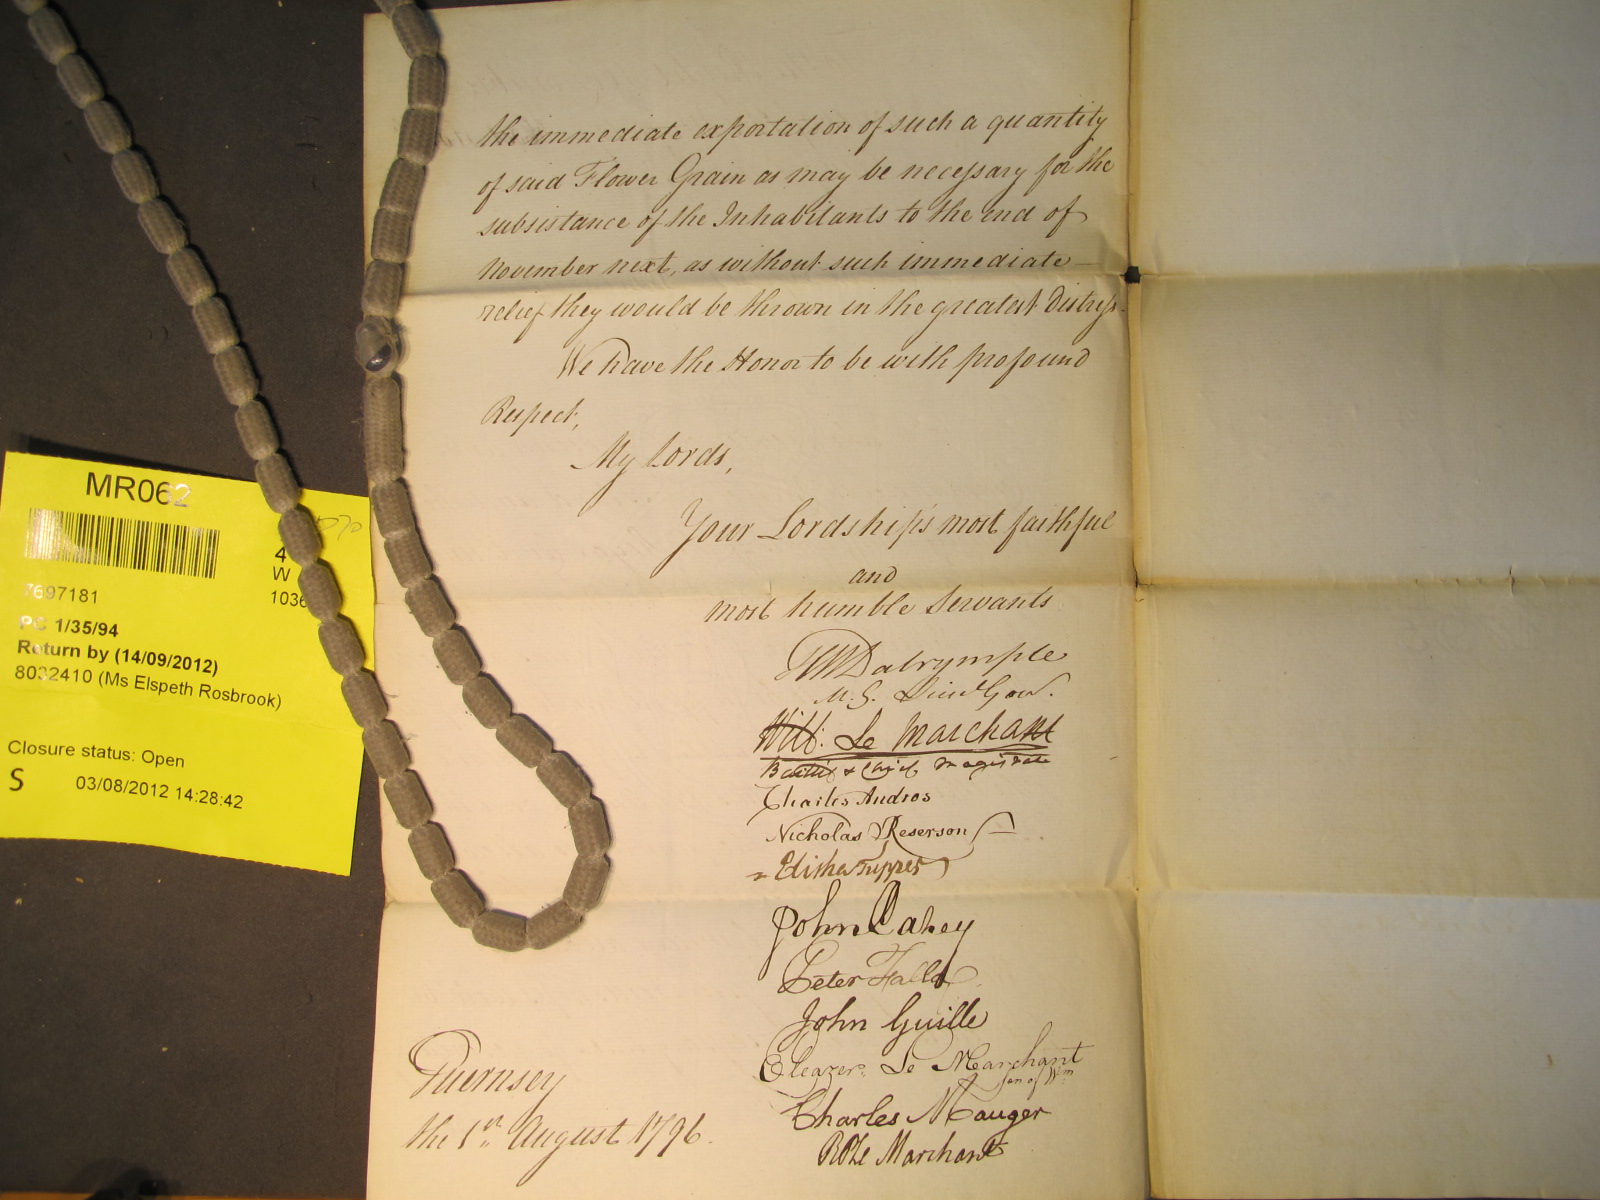 the immediate exportation of such a quantity
of said Flower Grain as may be necessary for the
subsistance of the Inhabitants to the end of
November next, as without such immediate
relief they would be thrown in the greatest Distress.
We have the Honor to be with profound
Respect,
My Lords,
Your Lordship's most faithful
and
most humble Servants
Dalrymple
M.G. Lieut Gov.
Will: Le Marchant
Bailiff & Chief Magistrate
Charles Andros
Nicholas Reserson
Elisha Tupper
John Carey
Peter Falla
John Guille
Eleazer Le Marchant
son of Wm
Charles Mauger
R P Le Marchant
Guernsey
the 1st August 1796.
MR062
4
W
1036
7697181
PC 1/35/94
Return by (14/09/2012)
8032410 (Ms Elspeth Rosbrook)
Closure status: Open
S 03/08/2012 14:28:42